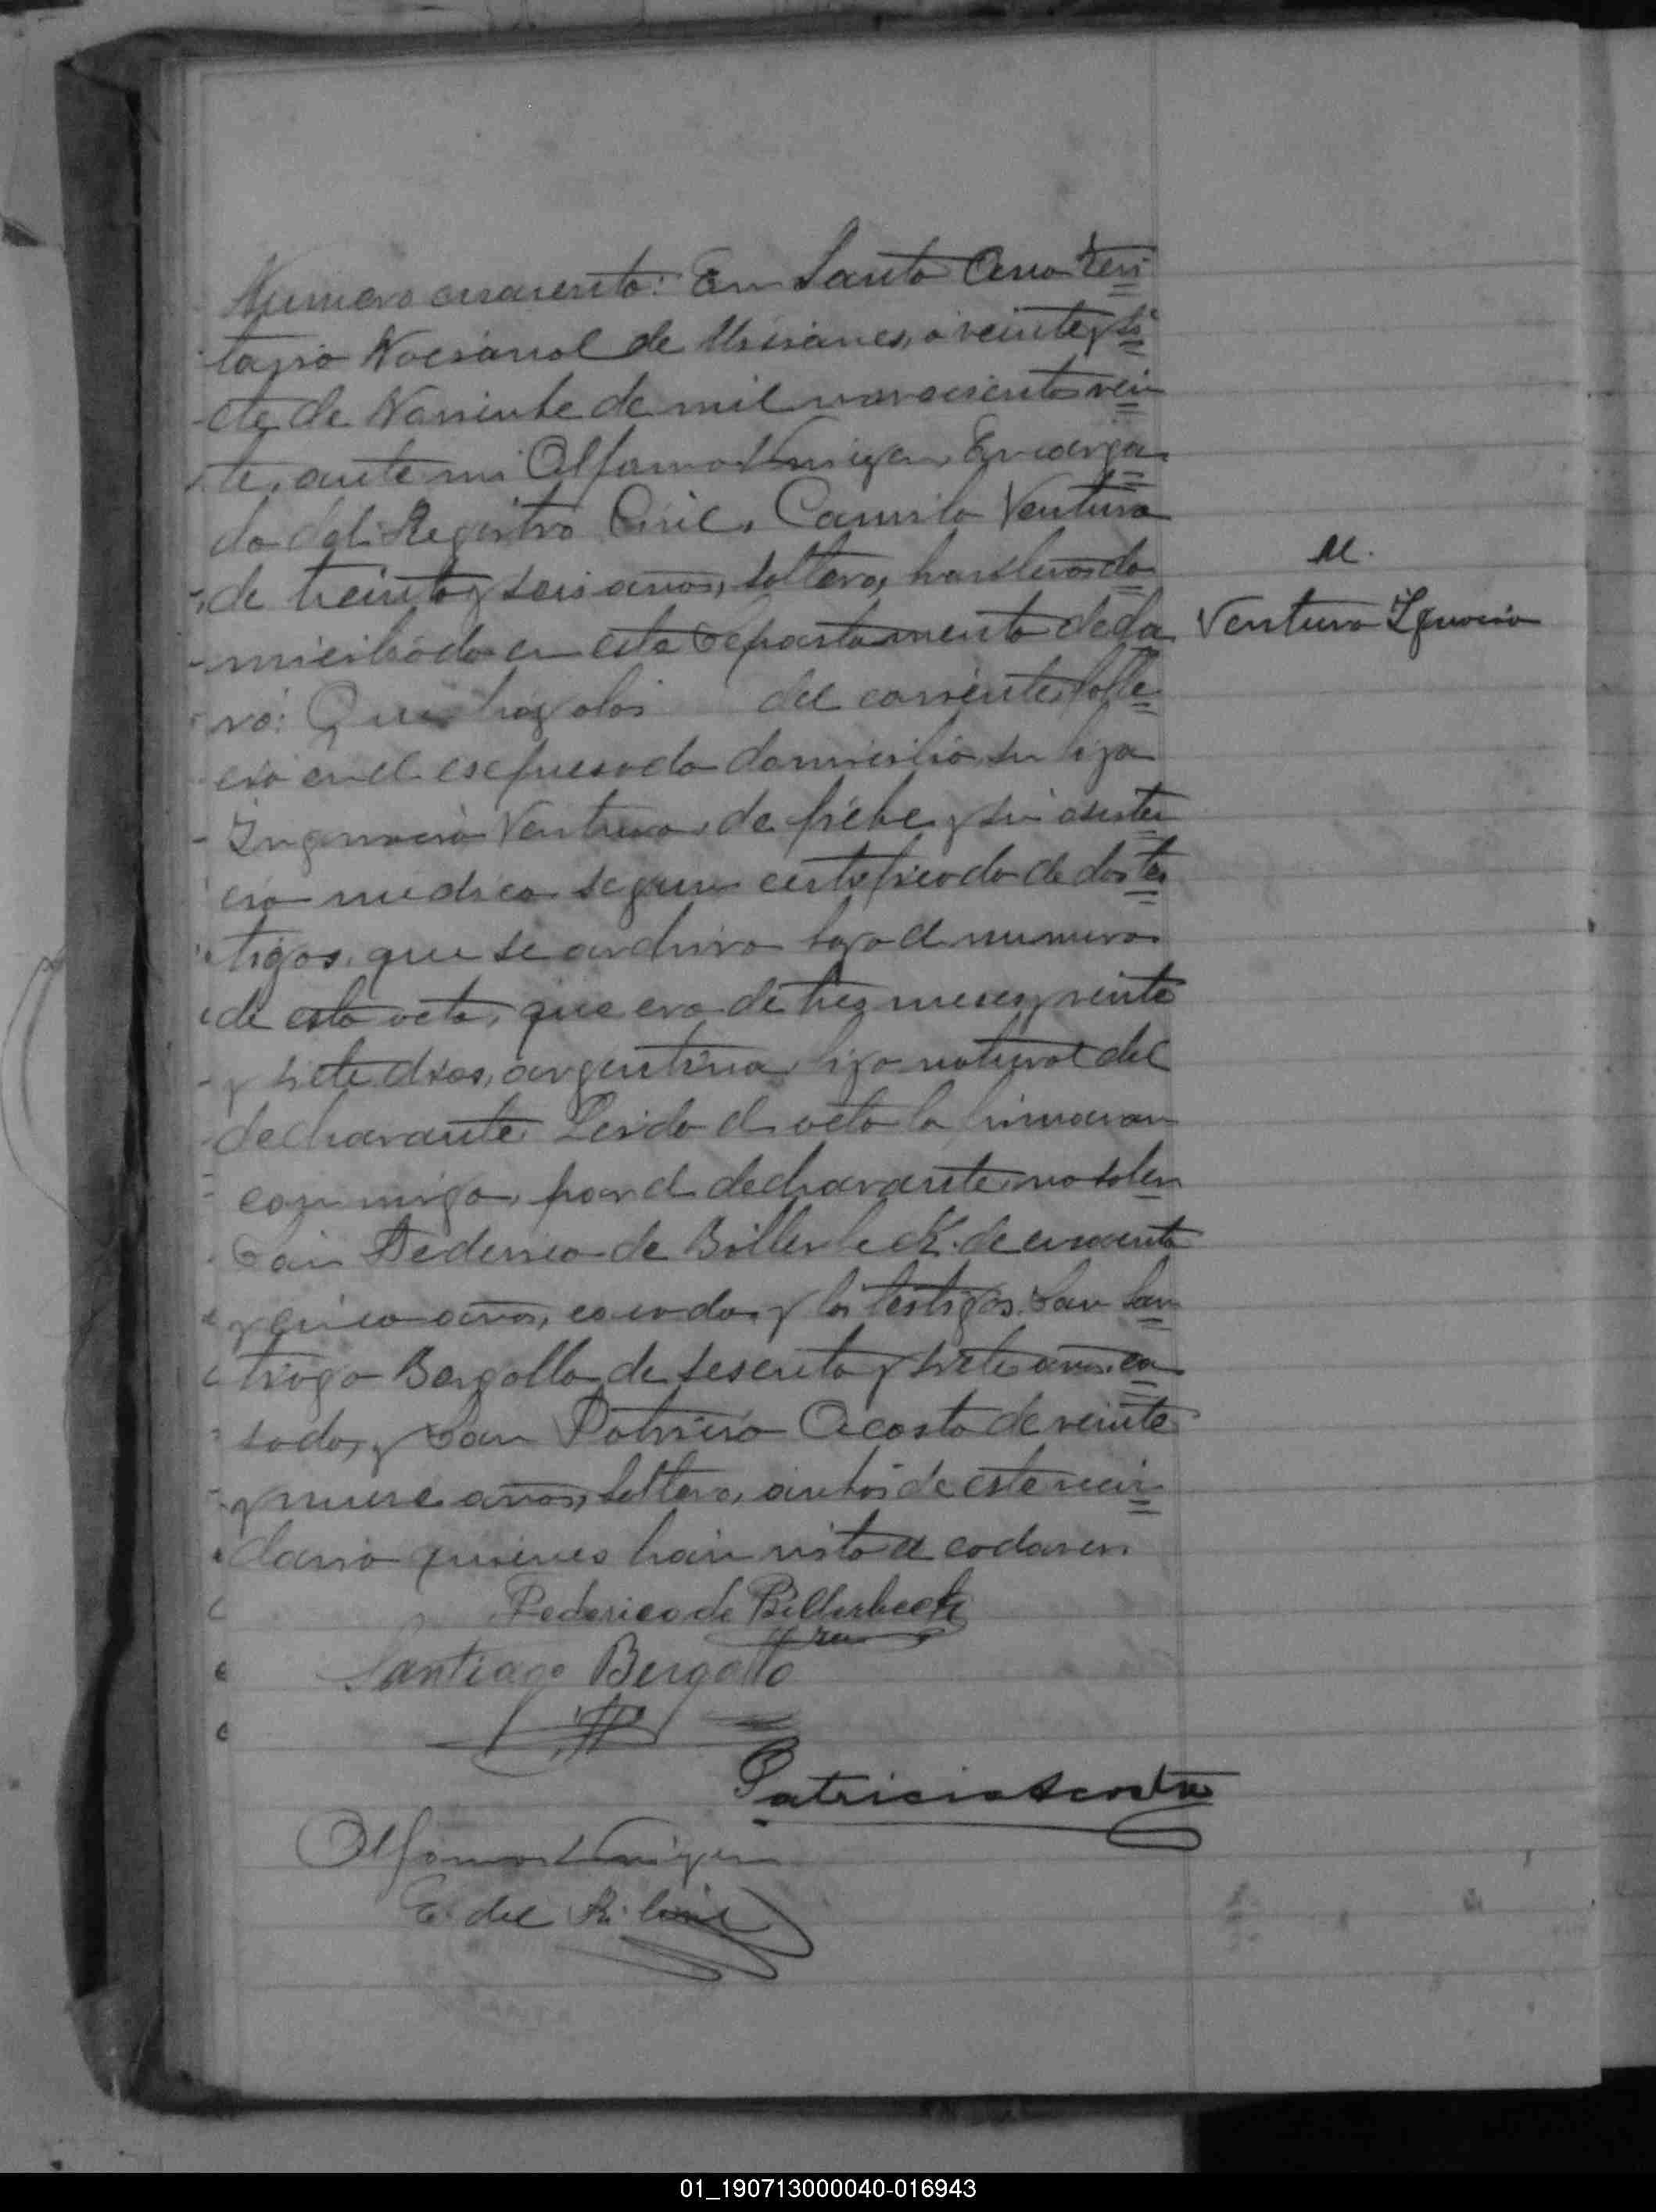 Numero cuarenta: En Santa Ana Terri
torio Nacional de Misiones, a veinte y si
ete de Noviembre de mil novecientos vein
te, ante mi Encarga
do del Registro Civil, Camilo Ventura
de treinta y seis años, soltero, do
miciliado en este Departamento decla
ró: Que del corriente, falle
ció en el espresado domicilio, su hija
Ingnacia Ventura, de fiebre y sin asisten
cia medica segun certificado de dos tes
tigos, que se archiva bajo el numero
de esta acta, que era de tres meses y veinte
y siete dias, argentina, hija natural del
declarante. Leida el acta la firmaron
conmigo, por el declarante no saber
Don Federico de Billerbeck de cuarenta
y cinco años, casado, y los testigos Don San
tiago Bergallo de sesenta y siete años, ca
sado, y Don Patricio Acosta de veinte
y nueve años, soltero, ambos de este vecin
dario quienes han visto el cadaver.
M.
Ventura Ignacia
Federico de Billerbeck
Santiago Bergallo
Patricio Acosta
E. del R. Civil
01_190713000040-016943